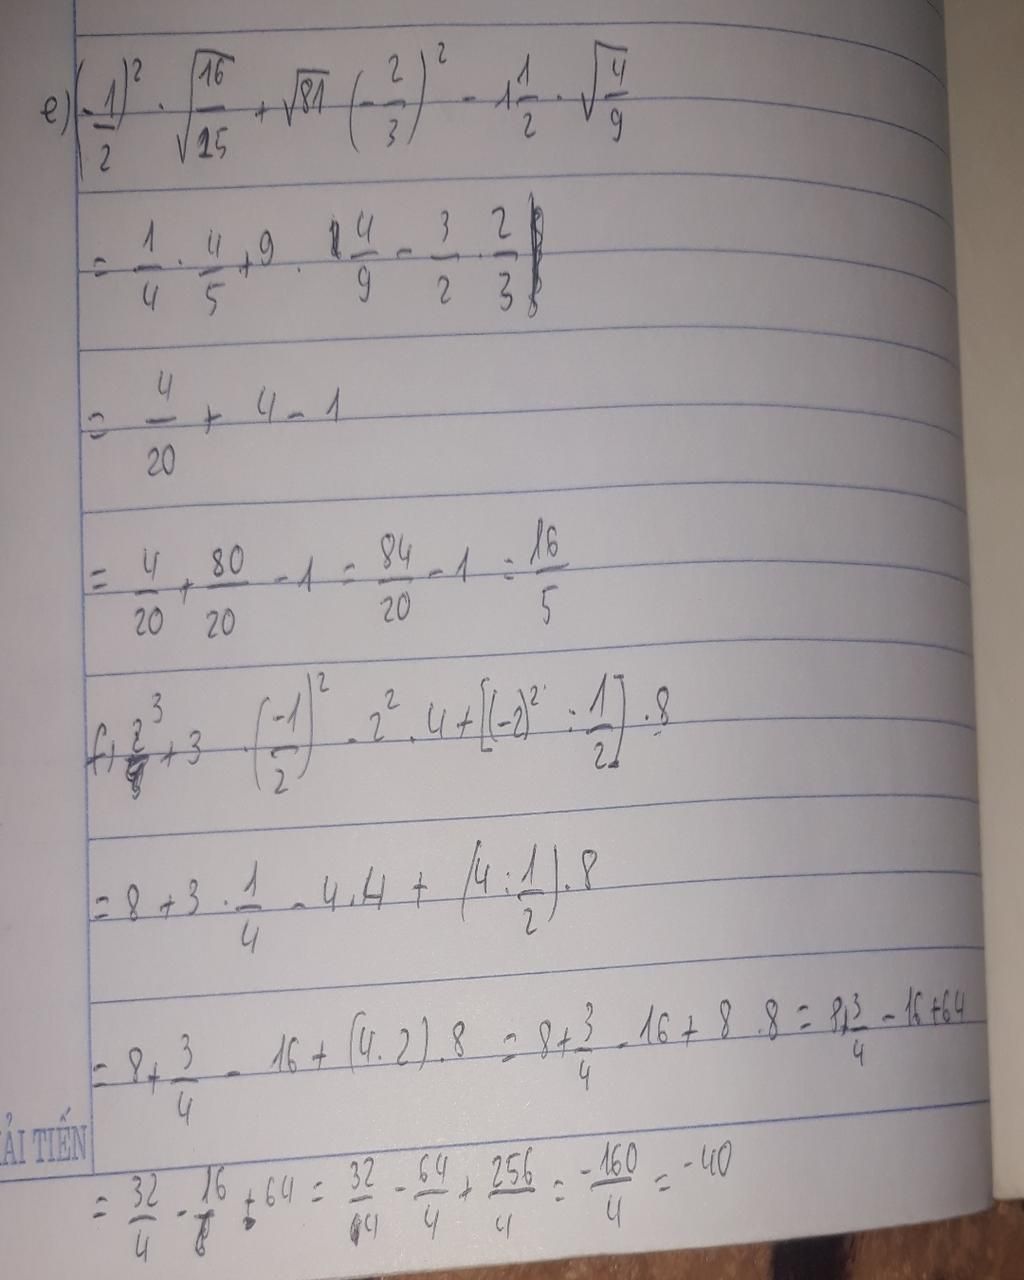 e) (-1/2)² . √16/25 + √81 (-2/3)² - 1 1/2 . √4/9
= 1/4 . 4/5 + 9 . 4/9 - 3/2 . 2/3
= 4/20 + 4 - 1
= 4/20 + 80/20 - 1 = 84/20 - 1 = 16/5
f) 2³ + 3 . (-1/2)² - 2² . 4 + [(-2)² : 1/2] . 8
= 8 + 3 . 1/4 - 4 . 4 + (4 : 1/2) . 8
= 8 + 3/4 - 16 + (4 . 2) . 8 = 8 + 3/4 - 16 + 8 . 8 = 8 + 3/4 - 16 + 64
ẢI TIẾN
= 32/4 - 16 + 64 = 32/4 - 64/4 + 256/4 = -160/4 = -40